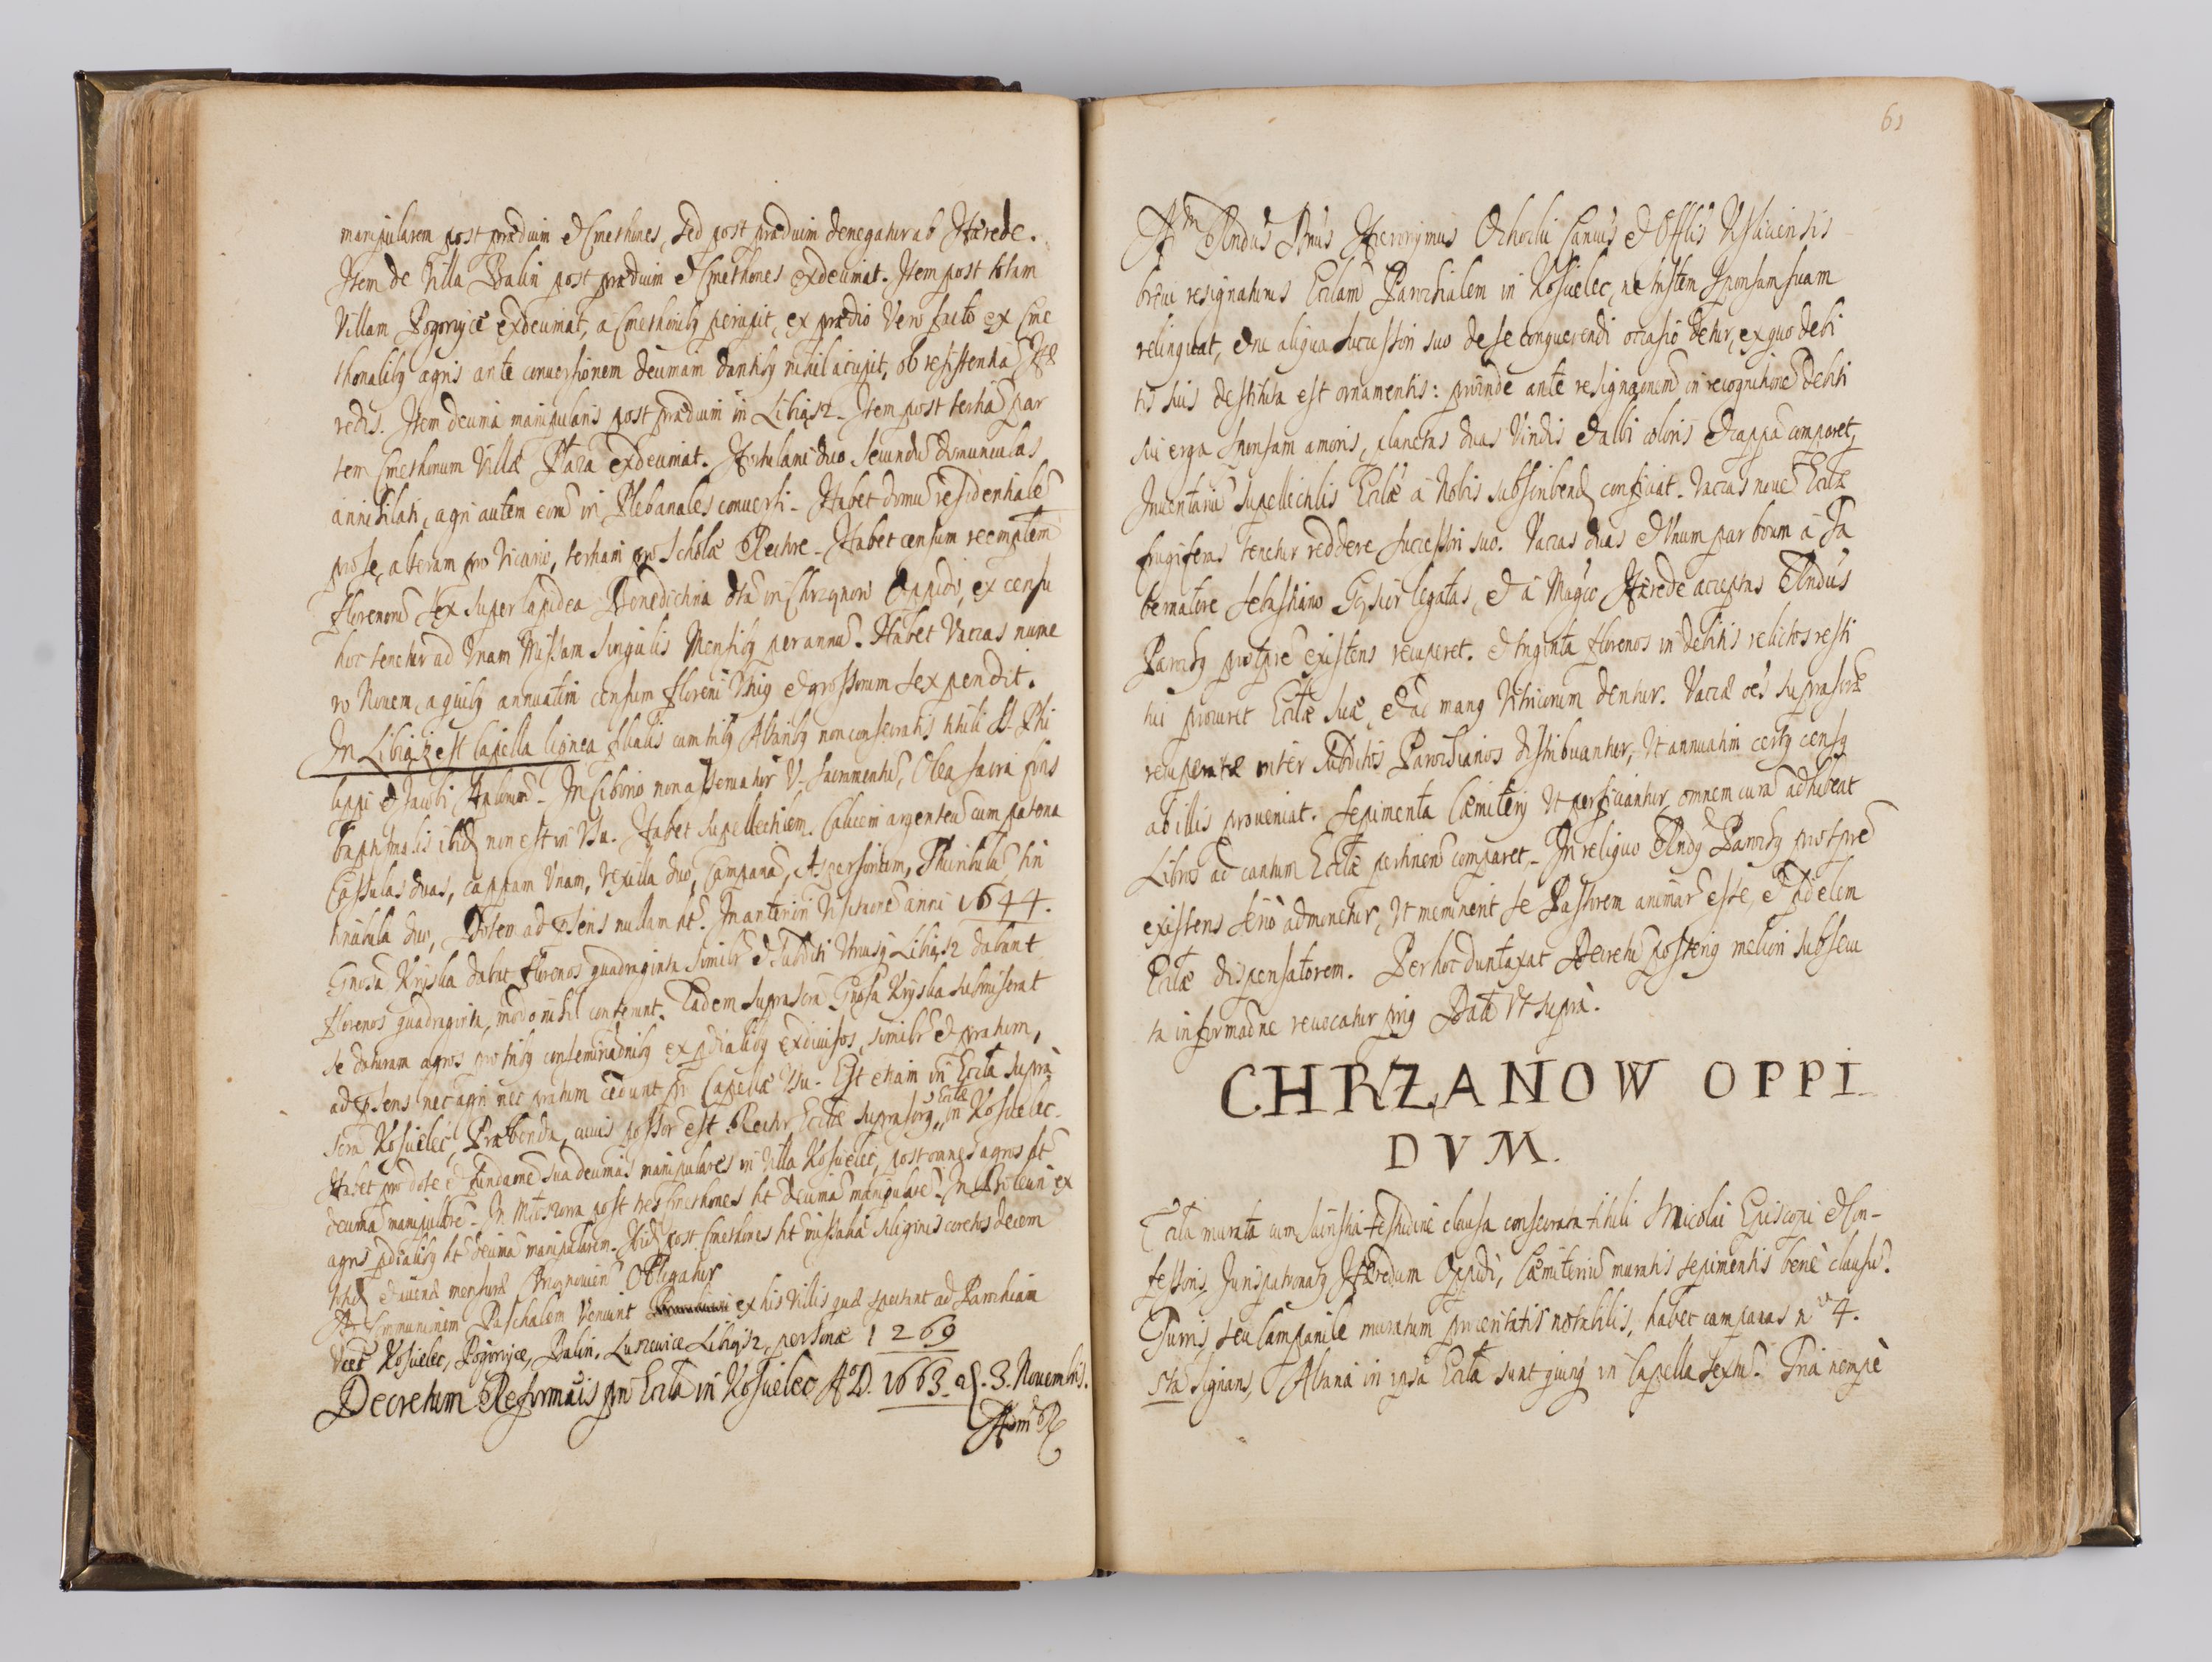 manipularem post prædium et Cmethones, sed post prædium denegatur ab Hærede.
Item de Villa Balin post prædium et Cmethones exdecimat. Item post totam
Villam Pogorzyce exdecimat, a Cmethonibq percipit, ex prædio vero facto ex Cme
thonalibq agris ante conversionem decimam dantibq nihil accipit, ob resistentiā Hæ
redis. Item decima manipularis post prædium in Libiąsz. Item post tertiā par
tem Cmethonum Villæ Płaza exdecimat. Hortulani duo secundū domunculas
annihilati, agri autem eorū in Plebanales conversi. Habet domū residentialē
pro se, alteram pro Vicario, tertiam pro Scholæ Rectore. Habet censum reemptlem
florenorū sex super lapidea Benedictina dta in Chrzqnow Oppido, ex censu
hoc tenetur ad Unam Missam singulis Mensibq per annū. Habet Vaccas nume
ro Novem, a quibq annuatim censum floreni Uniq et grossorum sex pendit.
In Libiąz est Capella lignea filialis cum tribq Altaribq non consecratis tituli SS. Phi
lippi et Jacobi Aplorum. In Ciborio non asservatur V. Sacramentū, Olea sacra fons
baptismalis ibid non est in Usu. Habet supellectilem. Calicem argenteū cum patena
Casulas duas, cappam Unam, vexilla duo, Campanā, Aspersorium, Thuribulū tin
tinabula duo, Dotem ad psens nullam ht. In anteriori Visitacnē anni 1644.
Gnosa Kryska dabat florenos quadraginta similr et Subditi Utriusq Libiąsz dabant
florenos quadraginta, modo nihil conferunt. Eadem suprascrā Gnosa Kryska submiserat
se daturam agros pro tribq conseminadnibq ex pdialibq exdivisos, similr et pratum,
ad psens nec agri nec pratum cedunt pr Capellæ Usu. Est etiam in Eccla supra
scrā Kościelec Præbenda, cuius possor est Rector Ecclæ suprascrq Ecclæ in Kościelec.
Habet pro dote et fundaone sua decimas manipulares in Villa Kościelec, post omnes agros ht
decimā manipularē. In Mętkow post tres Cmethones ht decimā manipularē. In
agris pdialibq ht decimā manipularem. Ibid post Cmethones ht missaliā siliginis coretos decem
totid et avenæ mensuræ Obligatur
Ad Communionem Paschalem Veniunt ex his Villis quæ spectant ad Parochiam
Vcet Kościelec, Pogorzyce, Balin, Luszowice Libiąsz, personæ 1269
Decretum Reformaōis pro Eccla in Kościelec AoD. 1663. a. 3. Novembris.
Adm R
61
Adm Rndus Dnus Hieronymus Canius et Offlis Visliciensis
brevi resignaturus Ecclam Parochialem in Kościelec, ne tristem Sponsam suam
relinquat, et ne aliqua successori suo de se conquerendi occasio detur, ex quo debi
tis suis destituta est ornamentis: proinde ante resignaonem in recognitionē debiti
sui erga Sponsam amoris, planetas duas Viridis et albi coloris et cappā comparet,
Inventariū Supellectilis Ecclæ a Nobis subscribend conficiat. Vaccas novē Ecclæ
frugiferas tenetur reddere successori suo. Vaccas duas et Unum par boum a Ta
bernatore Sebastiano legatas, et a Magco Hærede acceptas Rndus
Parochq pro tpre existens recuperet. et triginta florenos in debitis relictos resti
tui procuret Ecclæ suæ, et ad manq Vitricorum dentur. Vaccæ oes suprascræ
recuperatæ inter Subditos Parochianos distribuantur, Ut annuatim certq censq
ab illis proveniat. Sepimenta Cæmiterij Ut perficiantur omnem curā adhibeat
Libros ad cantum Ecclæ pertinen comparet. In reliquo Rndq Parochq pro tpre
existens serio admonetur, Ut meminerit se Pastorem animarū esse, et fidelem
Ecclæ dispensatorem. Per hoc duntaxat Decretū posteriq meliori subsecu
ta informaone revocatur priq Datū Ut supra.
CHRZANOW OPPI
DVM.
Eccla murata cum testudine clausa consecrata tituli S Nicolai Episcopi et Con-
fessoris, Jurispatronatq Hæredum Oppidi, Cæmiteriū muratis sepimentis bene clausū.
Turris seu Campanile muratum proceritatis notabilis, habet campanas no 4.
Altaria in ipsa Eccla sunt quinq in Capella sextū. Tria nempe